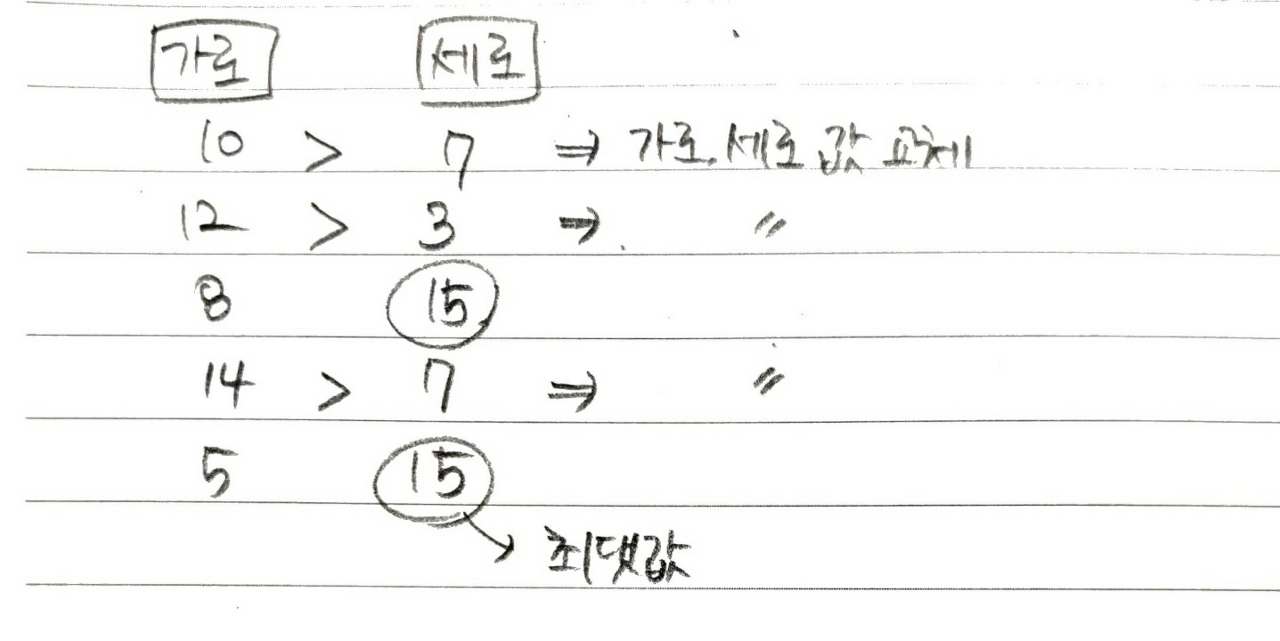 가로 세로
10 > 7 ⇒ 가로, 세로 값 교체
12 > 3 ⇒ 〃
8 15
14 > 7 ⇒ 〃
5 15
최댓값